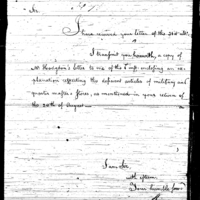 Sir
I have received your letter of the 21st
I transmit you herewith, a copy of
Mr Hodgdon's letter to me of the 8th
planation respecting the deficient articles of military and
quarter masters stores, as mentioned in your return of
the 20th of August
I am Sir
with esteem
Your humble serv